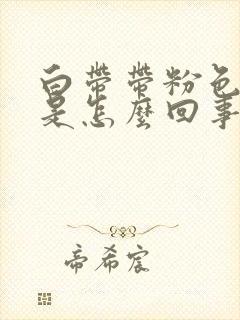 白帶帶粉色
是怎麼回事
帝希宸